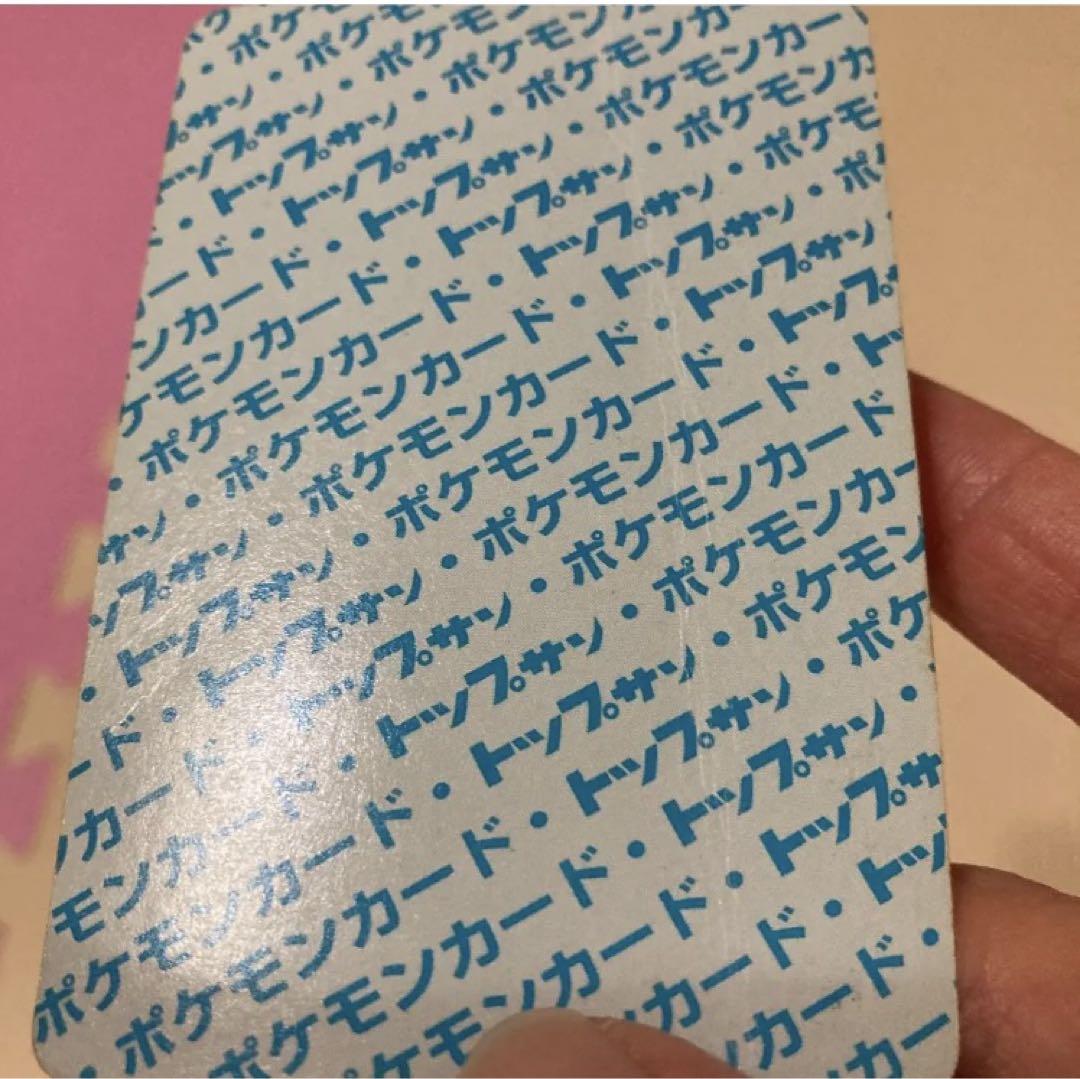 サン・ポケ
ップサン・ポケ
・トップサン・ポケモ
ード・トップサン・ポケモン
ンカード・トップサン・ポケモンカー
ケモンカード・トップサン・ポケモンカー
・ポケモンカード・トップサン・ポケモンカ
サン・ポケモンカード・トップサン・ポケモ
ップサン・ポケモンカード・トップサン・ポ
・トップサン・ポケモンカード・トップサン
ード・トップサン・ポケモンカード・トップ
ンカード・トップサン・ポケモンカード・ト
モンカード・トップサン・ポケモンカード
ポケモンカード・トップサン・ポケモンカー
・ポケモンカード・トップサン・ポケモン
ポケモンカード・トップサン・ポケ
ケモンカード・トップサン・
ンカード・トップサ
カード・トッ
カード・
カー